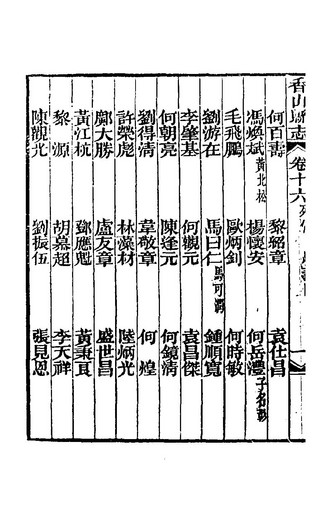 香山縣志 卷十六 列傳
何百壽 黎紹章 袁仕昌
馮煥斌 黃北松 楊懷安 何岳澧
毛飛鵬 歐炳釗 何時敏
劉游在 馬曰仁 鍾順寬
李肇基 何觀元 袁昌傑
何朝亮 陳逢元 何鏡清
劉得清 韋敬章 何煌
許榮彪 林藻材 陸炳光
鄺大勝 盧友章 盛世昌
黃江杭 鄧應魁 黃秉貞
黎源 胡慕超 李天祥
陳觀光 劉振伍 張見恩